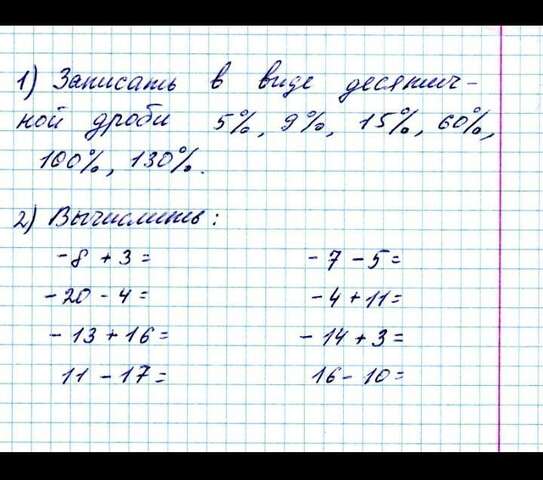 1) Записать в виде десятич-
ной дроби 5%, 9%, 15%, 60%,
100%, 130%.
2) Вычислить:
-8 + 3 = -7 - 5 =
-20 - 4 = -4 + 11 =
-13 + 16 = -14 + 3 =
11 - 17 = 16 - 10 =